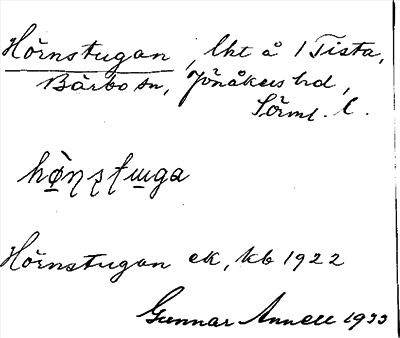 Hörnstugan, lht å 1 Tista,
Bärbo sn, Jönåkers hd,
Sörml. l.
hø̀ɳʂʈɯga
Hörnstugan ek, kb 1922
Gunnar Annell 1933